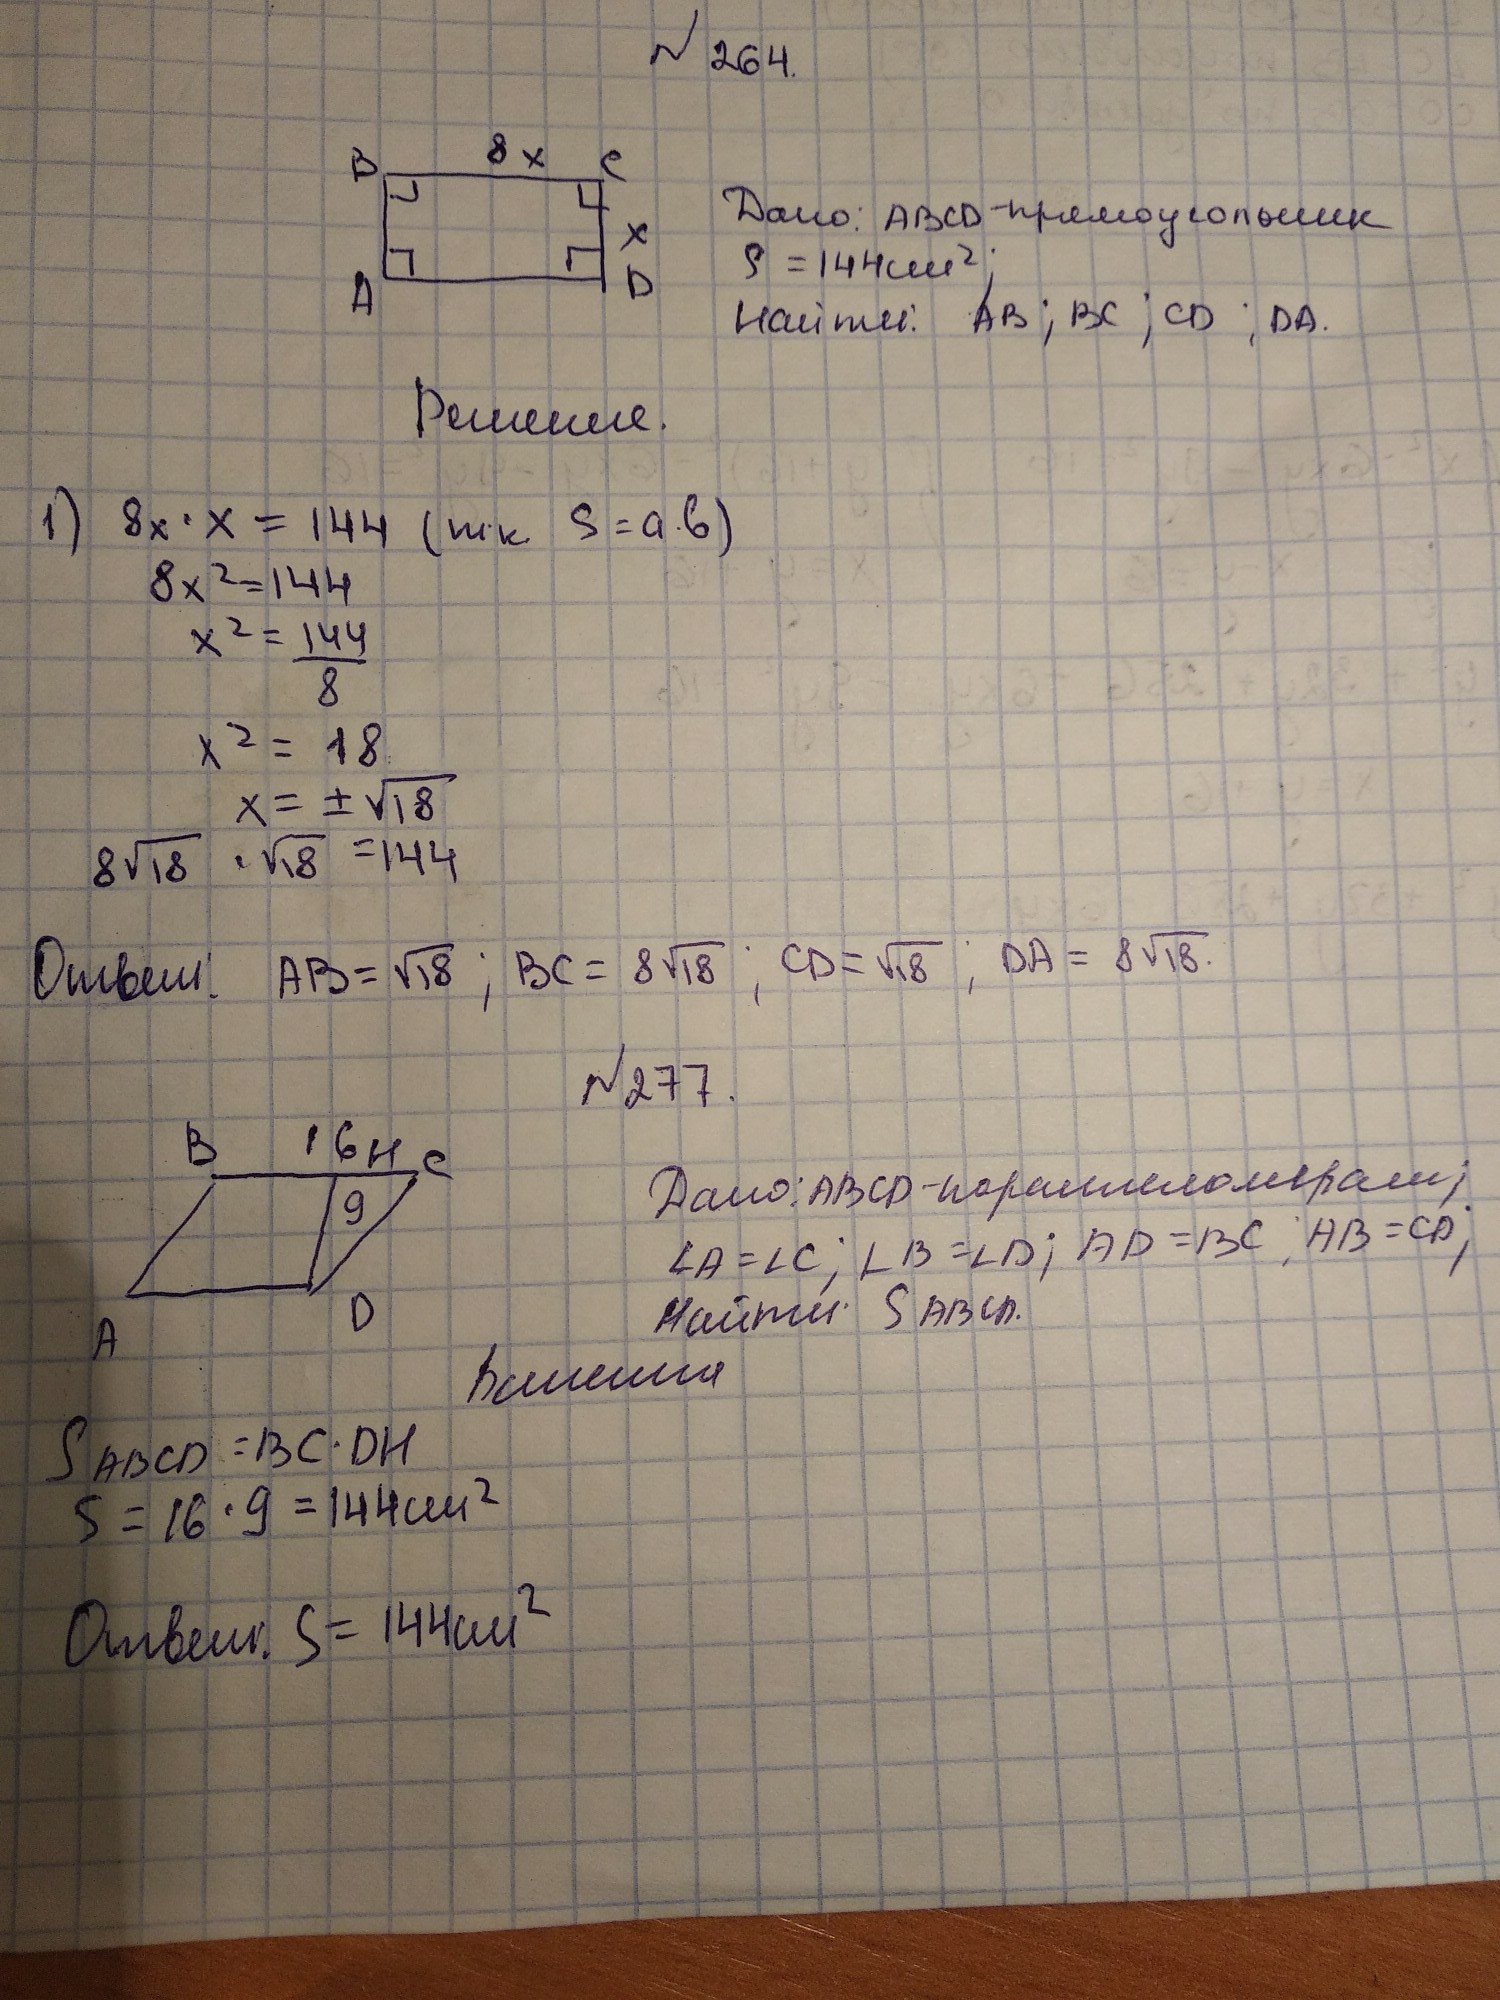 № 264.
8x
B C
x
A D
Дано: ABCD-прямоугольник
S = 144см²;
Найти: AB; BC; CD; DA.
Решение.
1) 8x · x = 144 (т.к. S = a·b)
8x² = 144
x² = 144/8
x² = 18
x = ±√18
8√18 · √18 = 144
Ответ: AB = √18; BC = 8√18; CD = √18; DA = 8√18.
№277.
B 16 H C
9
A D
Дано: ABCD-параллелограм;
∠A = ∠C; ∠B = ∠D; AD = BC; AB = CD;
Найти: S ABCD.
S ABCD = BC · DH
S = 16 · 9 = 144см²
Ответ: S = 144см²